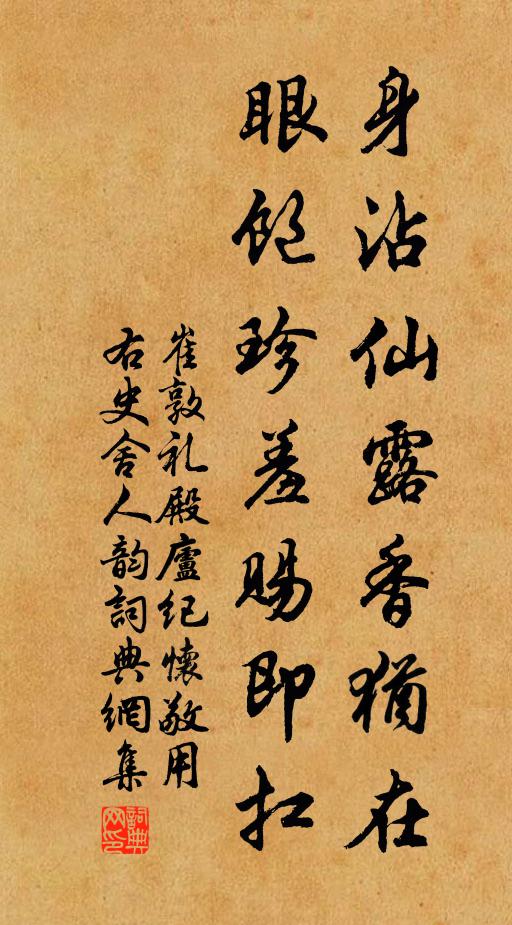 身沾仙露香犹在
眼饱珍羞赐即扛
崔敦礼殿廬纪懷敬用
右史舍人韵詞典網集
詞典網印